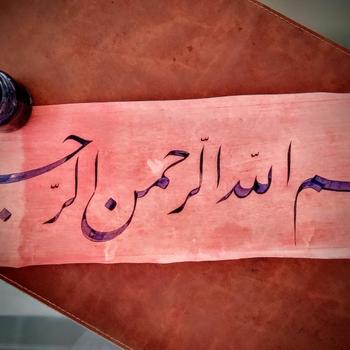 ـسم اللّه الرّحمن الرّحيـ